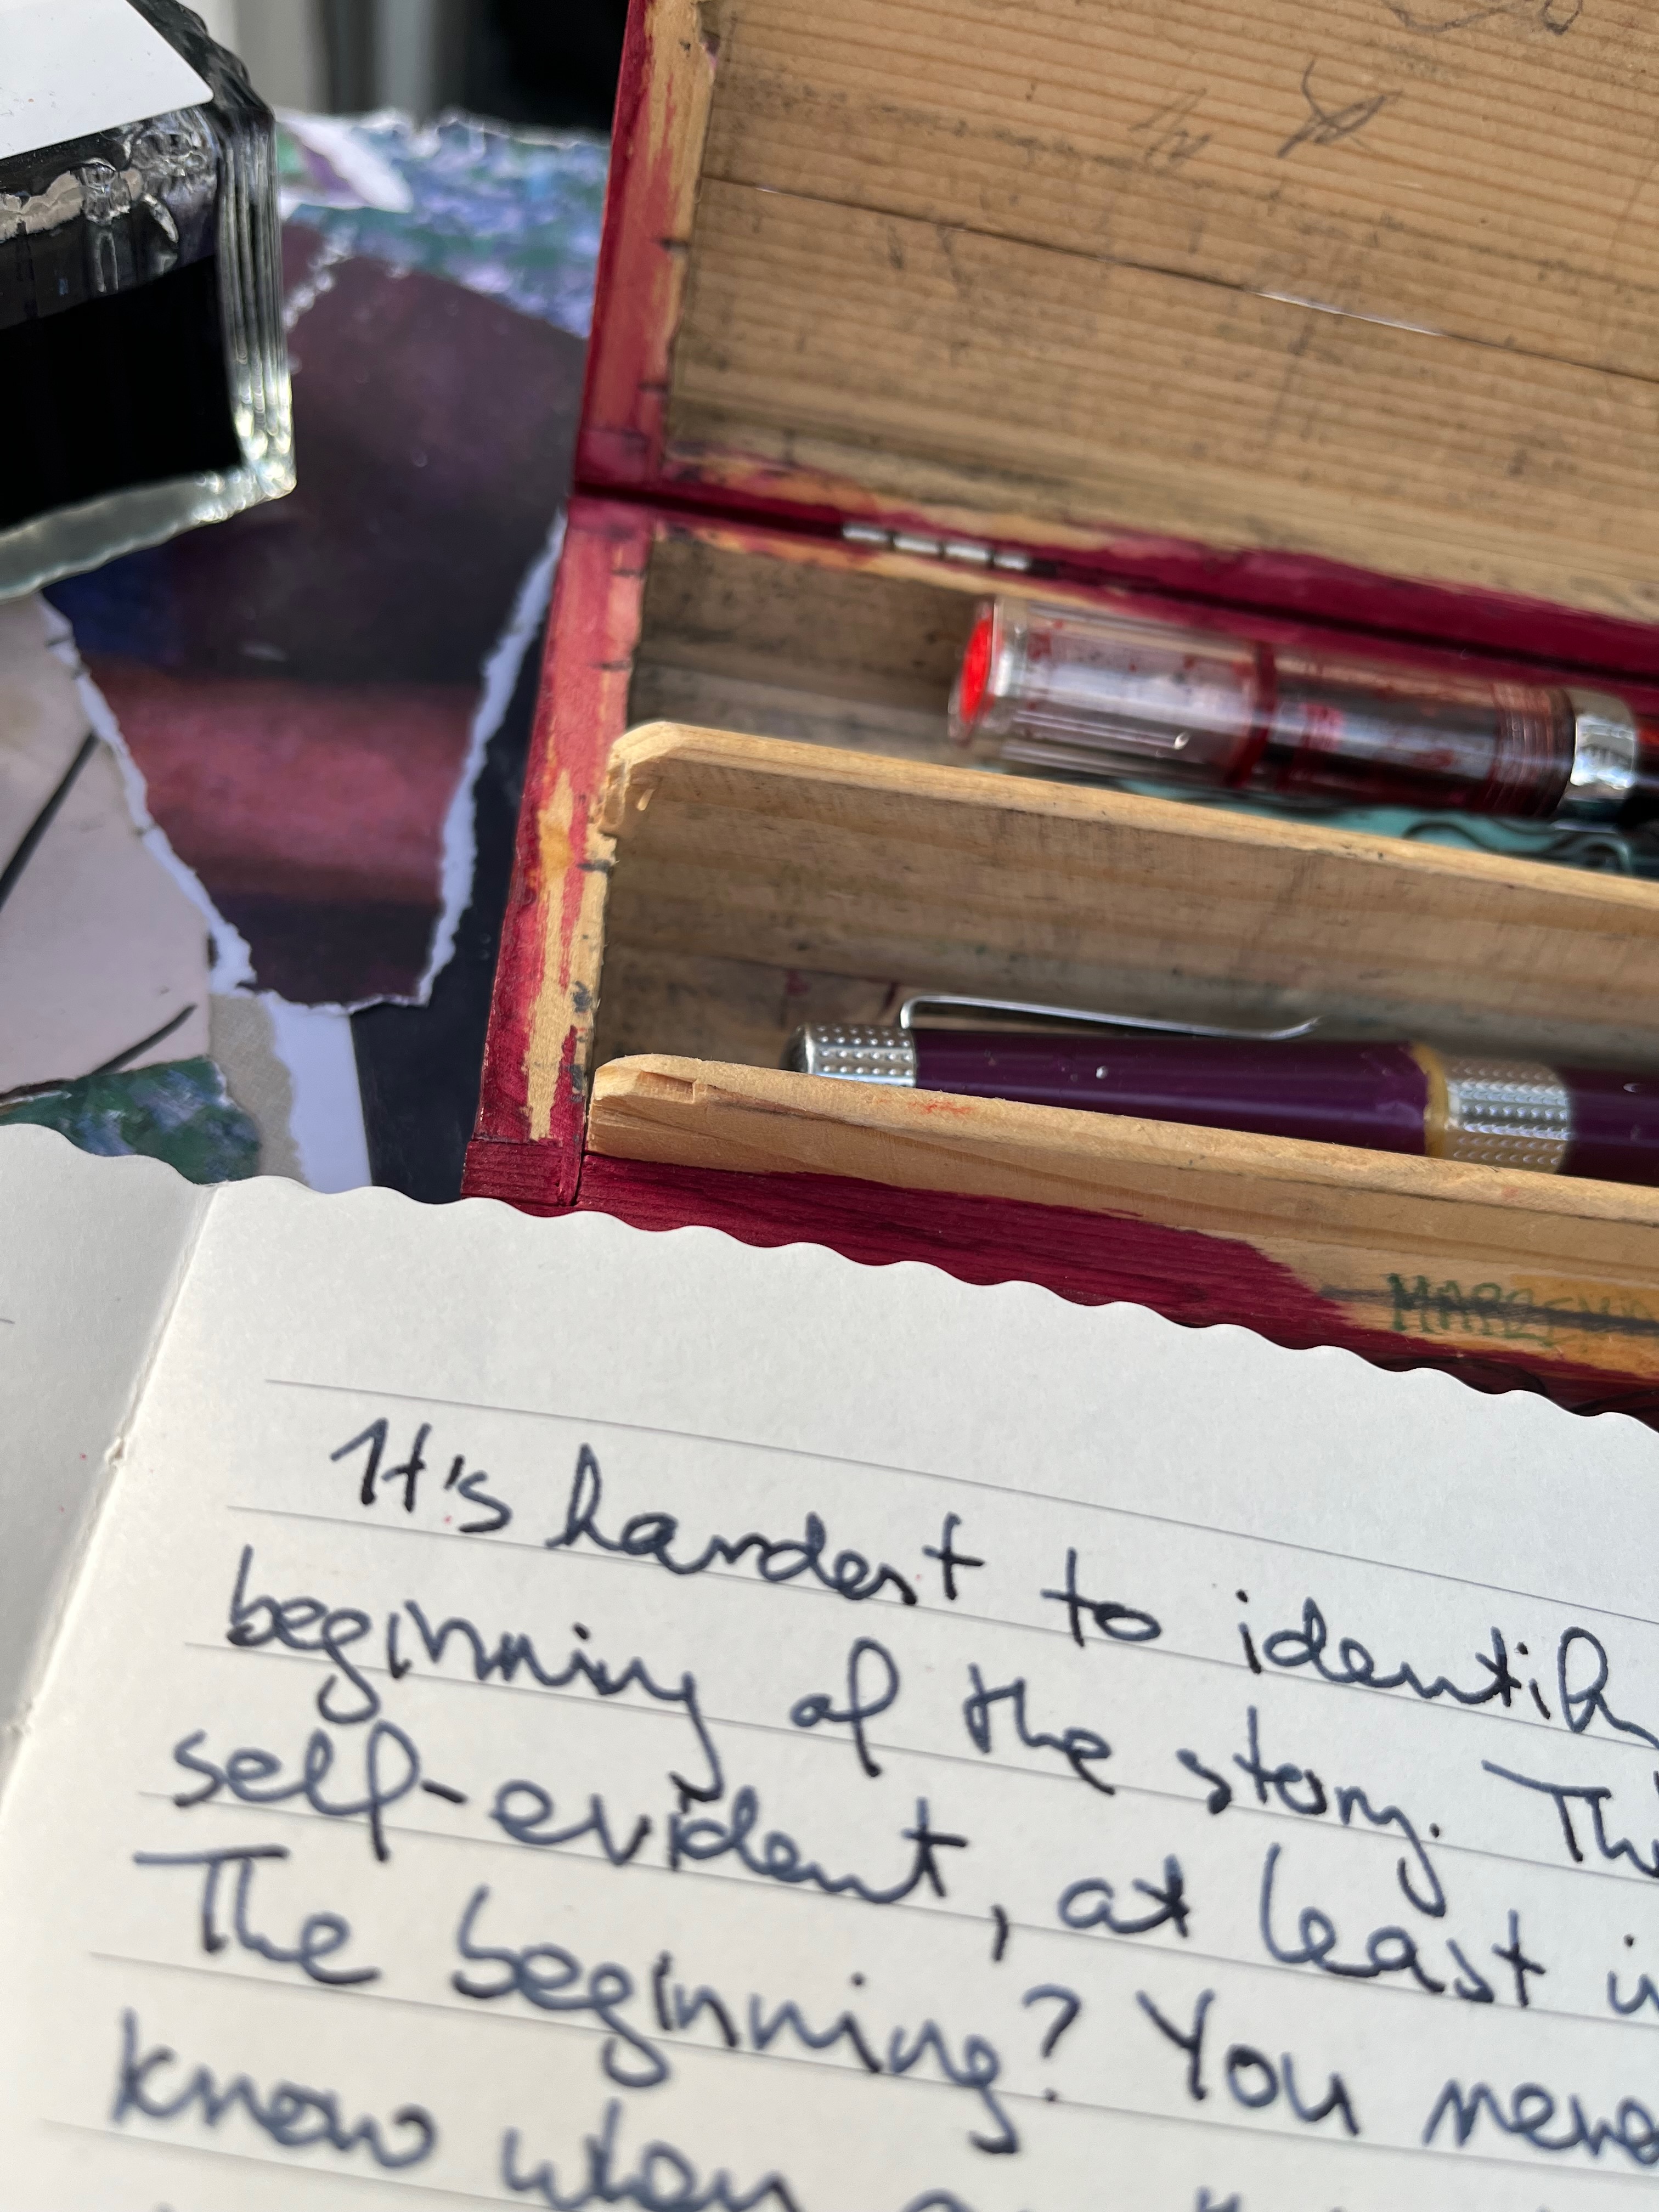 It's hardest to identify
beginning of the story. The
self-evident, at least i
The beginning? You neve
know when